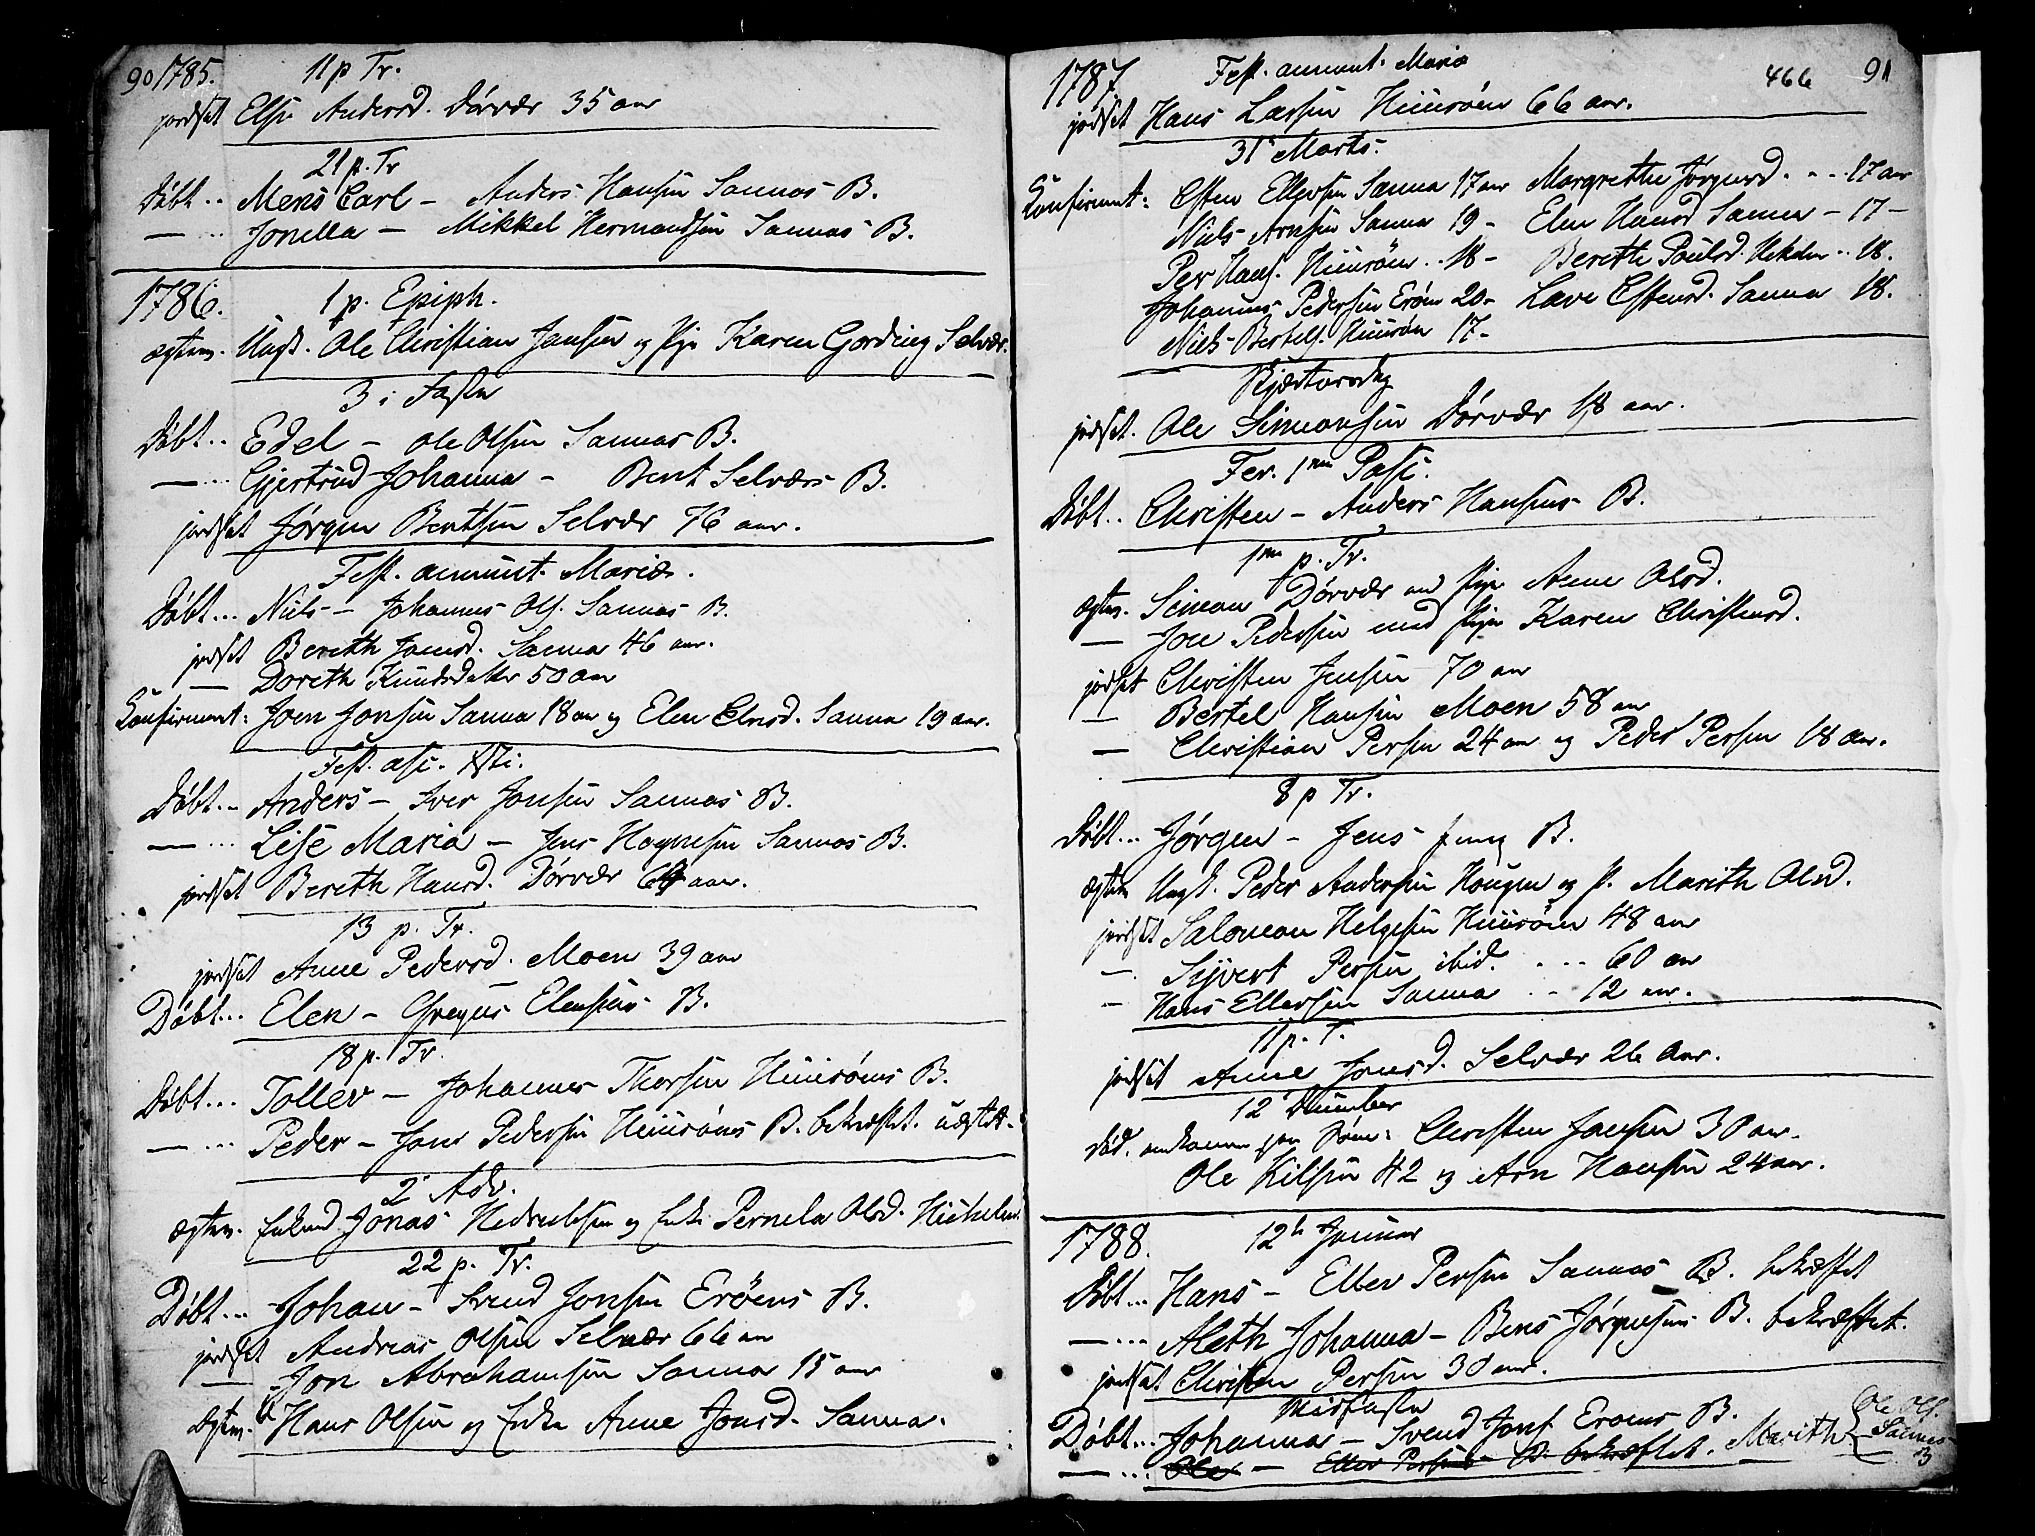 90 1785. 11 p Tr.
jordset Else Andersd. Dørvær 35 aar
21 p. Tr
Døbt.. Mens Carl – Anders Hansen Sannas B.
— ... Jonetta — Mikkel Hermandsen Sannas B.
1786. 1 p. Epiph.
ægtev. Ungk. Ole Christian Jansen og Pige Karen Gording Selvær.
3 i Faste
Døbt.. Edel – Ole Olsen Sannas B.
— ... Gjertrud Johanna – Bent Selværs B.
jordset Jørgen Bentsen Selvær 76 aar.
Fest. annunt. Mariæ.
Døbt... Niels – Johannes Ols. Sannas B.
jordset Bereth Jansd. Sanna 46 aar.
— Doreth Knudsdatter 50 aar
Confirment: Joen Jonsen Sanna 18 aar og Elen Elnsd. Sanna 19 aar.
Fest. asc. Xsti.
Døbt.. Anders – Iver Jonsen Sannas B.
— ... Lise Maria – Jens Hagensen Sannas B.
jordset Bereth Hansd. Dørvær 64 aar.
13 p. Tr.
jordset Anne Pedersd. Moen 39 aar
Døbt... Elen – Gregus Elensens B.
18 p. Tr.
Døbt... Tollev – Johannes Thorsen Huusøens B.
— ... Peder – Jons Pedersen Huusøens B. bekræftet. uægte.
2. Adv.
Ægtev. Enkemd Jonas Hedrubsen og Enke Pernela Olsd.
22 p. Tr.
Døbt... Johan – Svend Jonsen Erøens B.
jordset Andreas Olsen Selvær 66 aar
— Jon Abrahamsen Sanna 15 aar
ægtev. U Hans Olsen og Enke Anne Jonsd. Sanna.
1787 Fest. annunt. Maria 466 91
jordset Hans Larsen Huusøen 66 aar.
31 Marts.
Confirment: Esten Ellevsen Sanna 17 aar Margrethe Jørgensd. ... 17 aar
Niels Arnsen Sanna 19 – Elen Hansd Sanna – 17 –
Per Hans. Huusøen .. 18 – Bereth Poulsd. .. 18.
Johannes Pedersen Erøen 20 – Lave Estensd. Sanna 18.
Niels Bertels. Huusøen 17 –
Skjærtorsdag
jordset. Ole Simonsen Dørvær 18 aar.
Fer. 1ma Pasc.
Døbt.. Christen – Anders Hansens B.
1ma p. Tr.
ægtev. Simon Dørvær med Pige Anne Olsd.
— Jon Pedersen med Pige Karen Christensd.
jordset Christen Jensen 70 aar
— Bertel Hansen Moen 58 aar
— Christian Persen 24 aar og Peder Persen 18 aar.
8 p Tr.
Døbt... Jørgen – Jens B.
ægtev Ungk. Peder Andersen Hougen og P. Marith Olsd.
jordset Salomon Helgesen Huusøen 48 aar
– Syvert Persen ibid. ... 60 aar
– Hans Ellevsen Sanna .. 12 aar.
11 p. T.
jordset Anne Jonsd. Selvær 26 Aar.
12 December
død. omkomne paa Søen: Christen Jansen 30 aar.
Ole Kilsen 42 og Arn Hansen 24 aar.
1788. 12te Januar
Døbt... Hans – Ellev Persen Sannas B. bekræftet
— ... Aleth Johanna – Bens Jørgensens B. bekræftet.
jordset. Christen Persen 30 aar.
Midfaste
Døbt... Johanna – Svend Jons. Eroens B.
— ... Ole – Ellev Persens B. bekræftet. Marith { Ole Ols. Sannas B